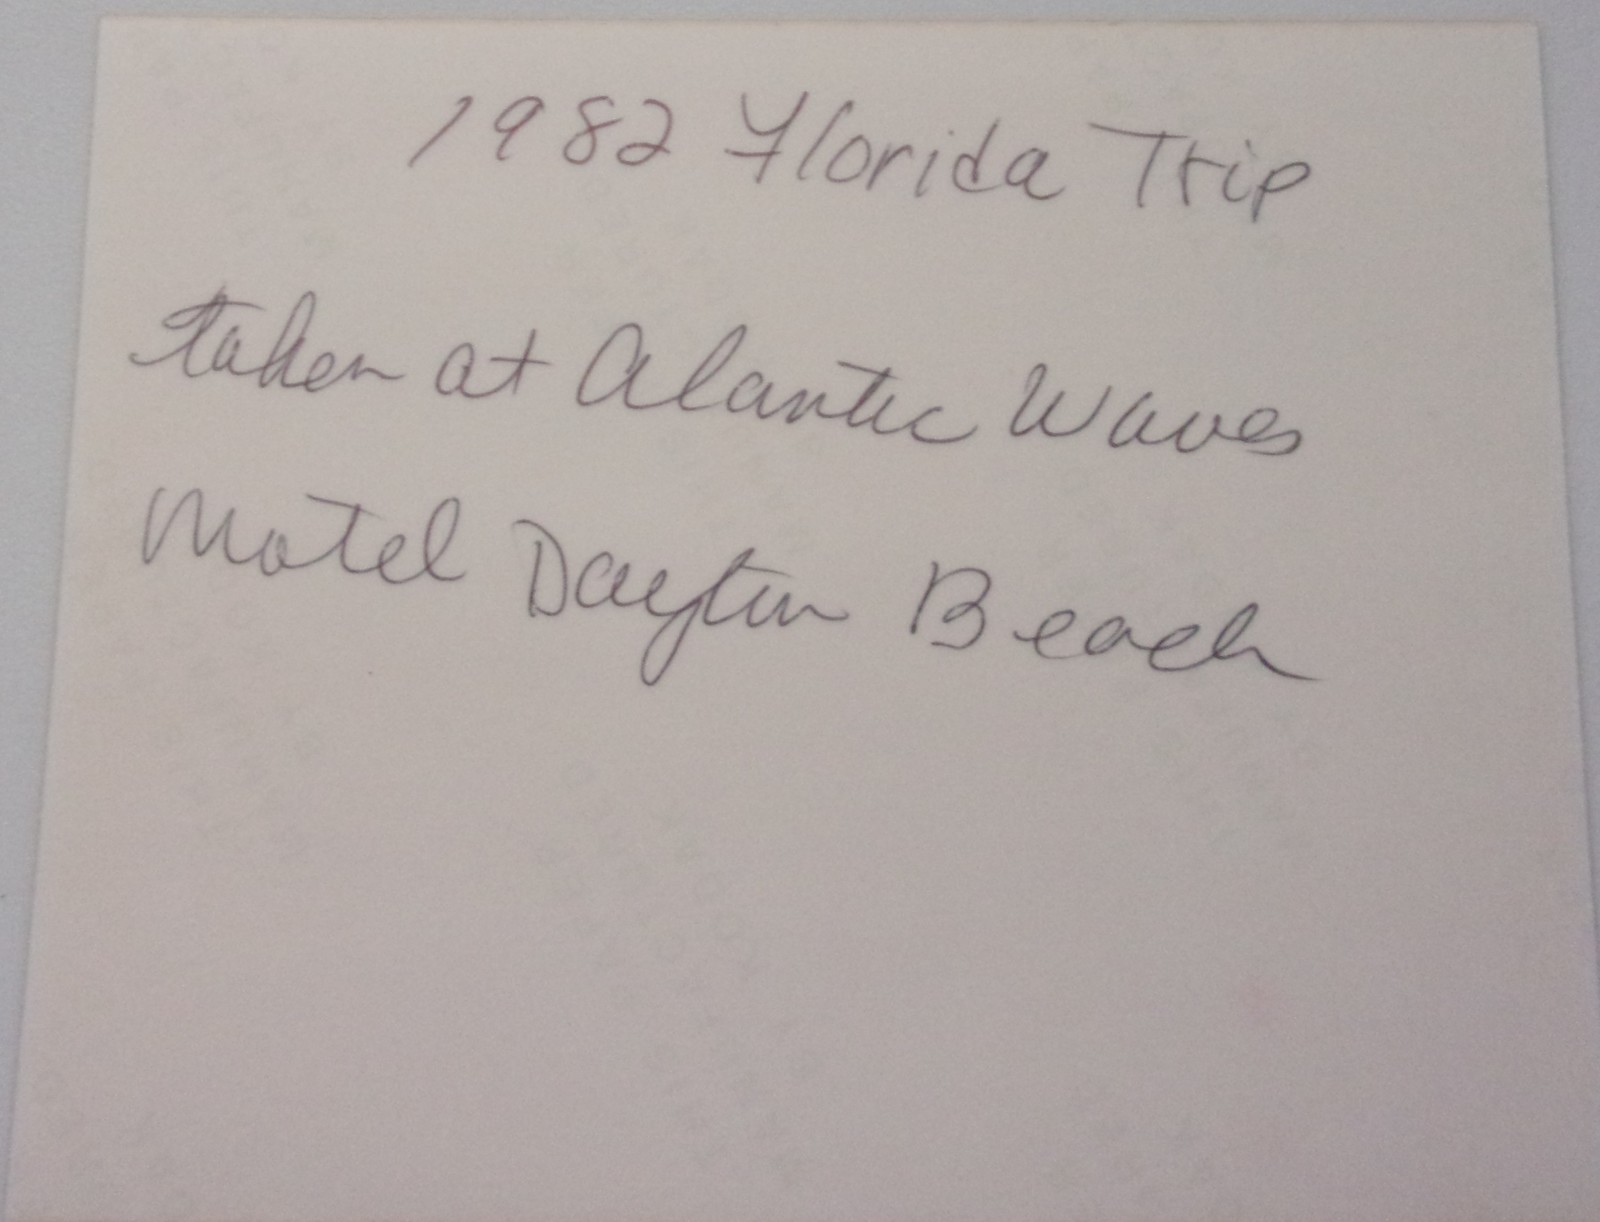 1982 Florida Trip
taken at Alantic Waves
Motel Dayton Beach